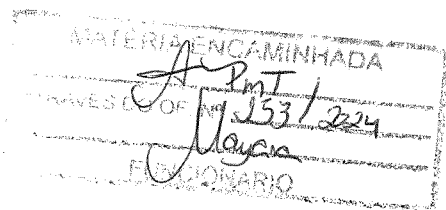 MATÉRIA ENCAMINHADA
A PMT
ATRAVÉS DO OF. Nº 253/2024
Mayara
FUNCIONÁRIO